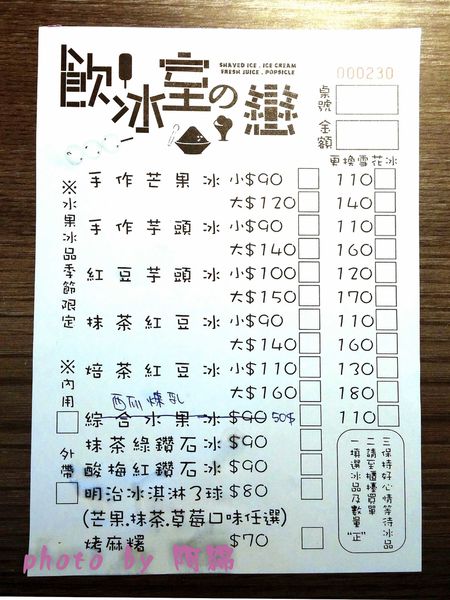 飲冰室の戀
SHAVED ICE . ICE CREAM
FRESH JUICE . POPSICLE
000230
桌號
金額
更換雪花冰
※水果冰品季節限定
手作芒果冰 小$90 110
大$120 140
手作芋頭冰 小$90 110
大$140 160
紅豆芋頭冰 小$100 120
大$150 170
抹茶紅豆冰 小$90 110
大$140 160
焙茶紅豆冰 小$110 130
大$160 180
※內用
外帶
西瓜煉乳
綜合水果冰 $90 50$ 110
抹茶綠鑽石冰 $90
酸梅紅鑽石冰 $90
明治冰淇淋3球 $80
(芒果.抹茶.草莓口味任選)
烤麻糬 $70
三保持好心情等待冰品
二請至櫃檯買單
一填選冰品及數量"正"
photo by 阿綿